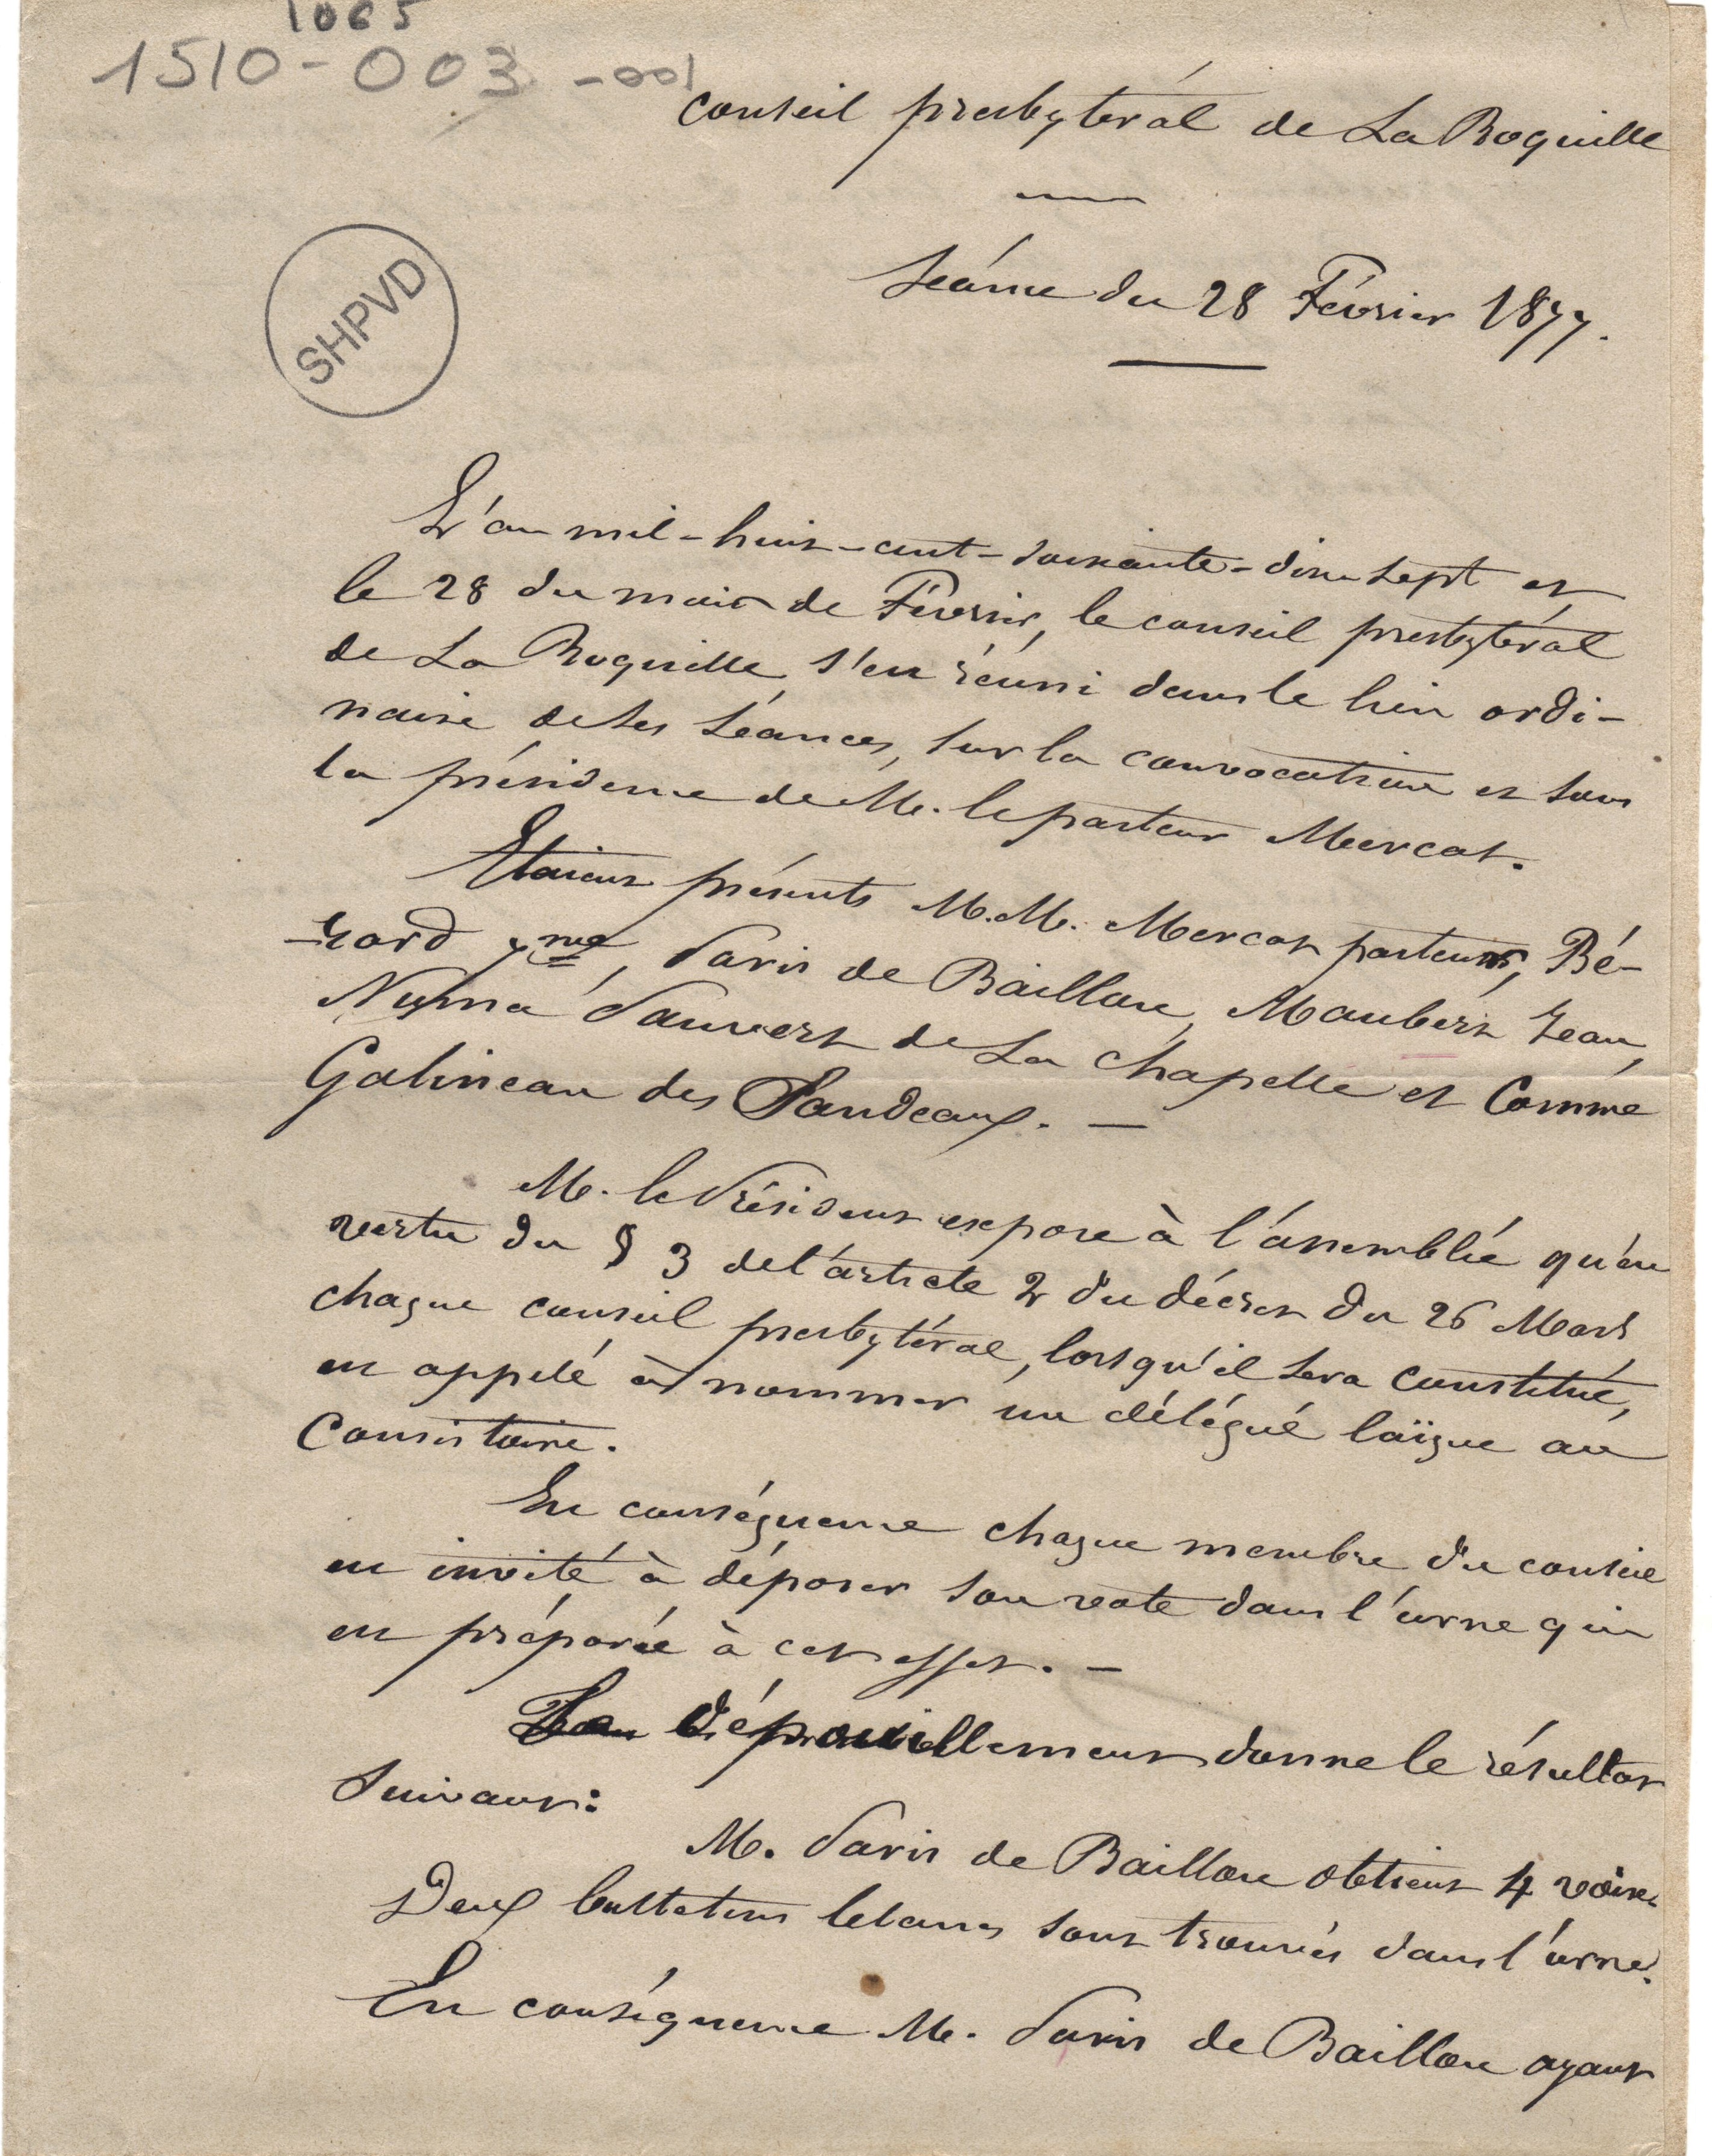 1065
1510-003-001
Conseil presbytéral de La Roquille
SHPVD
Séance du 28 Février 1877.
L'an mil-huit-cent-soixante-dix-sept et
le 28 du mois de Février, le conseil presbytéral
de La Roquille, s'est réuni dans le lieu ordi-
naire de ses séances, sur la convocation et sous
la présidence de M. le pasteur Mercat.
Etaient présents M.M. Mercat pasteur, Bé-
-rard, Paris de Baillou, Maubert Jean,
Numa Pauvert de La Chapelle et Comme
Galineau des Pandeaux. —
M. le Président expose à l'assemblée qu'en
vertu du § 3 de l'article 2 du décret du 26 Mars
chaque conseil presbytéral, lorsqu'il sera constitué,
est appelé à nommer un délégué laïque au
Consistoire.
En conséquence chaque membre du conseil
est invité à déposer son vote dans l'urne qui
est préparée à cet effet. —
Le dépouillement donne le résultat
suivant:
M. Paris de Baillou obtient 4 voix.
Deux bulletins blancs sont trouvés dans l'urne.
En conséquence M. Paris de Baillou ayant